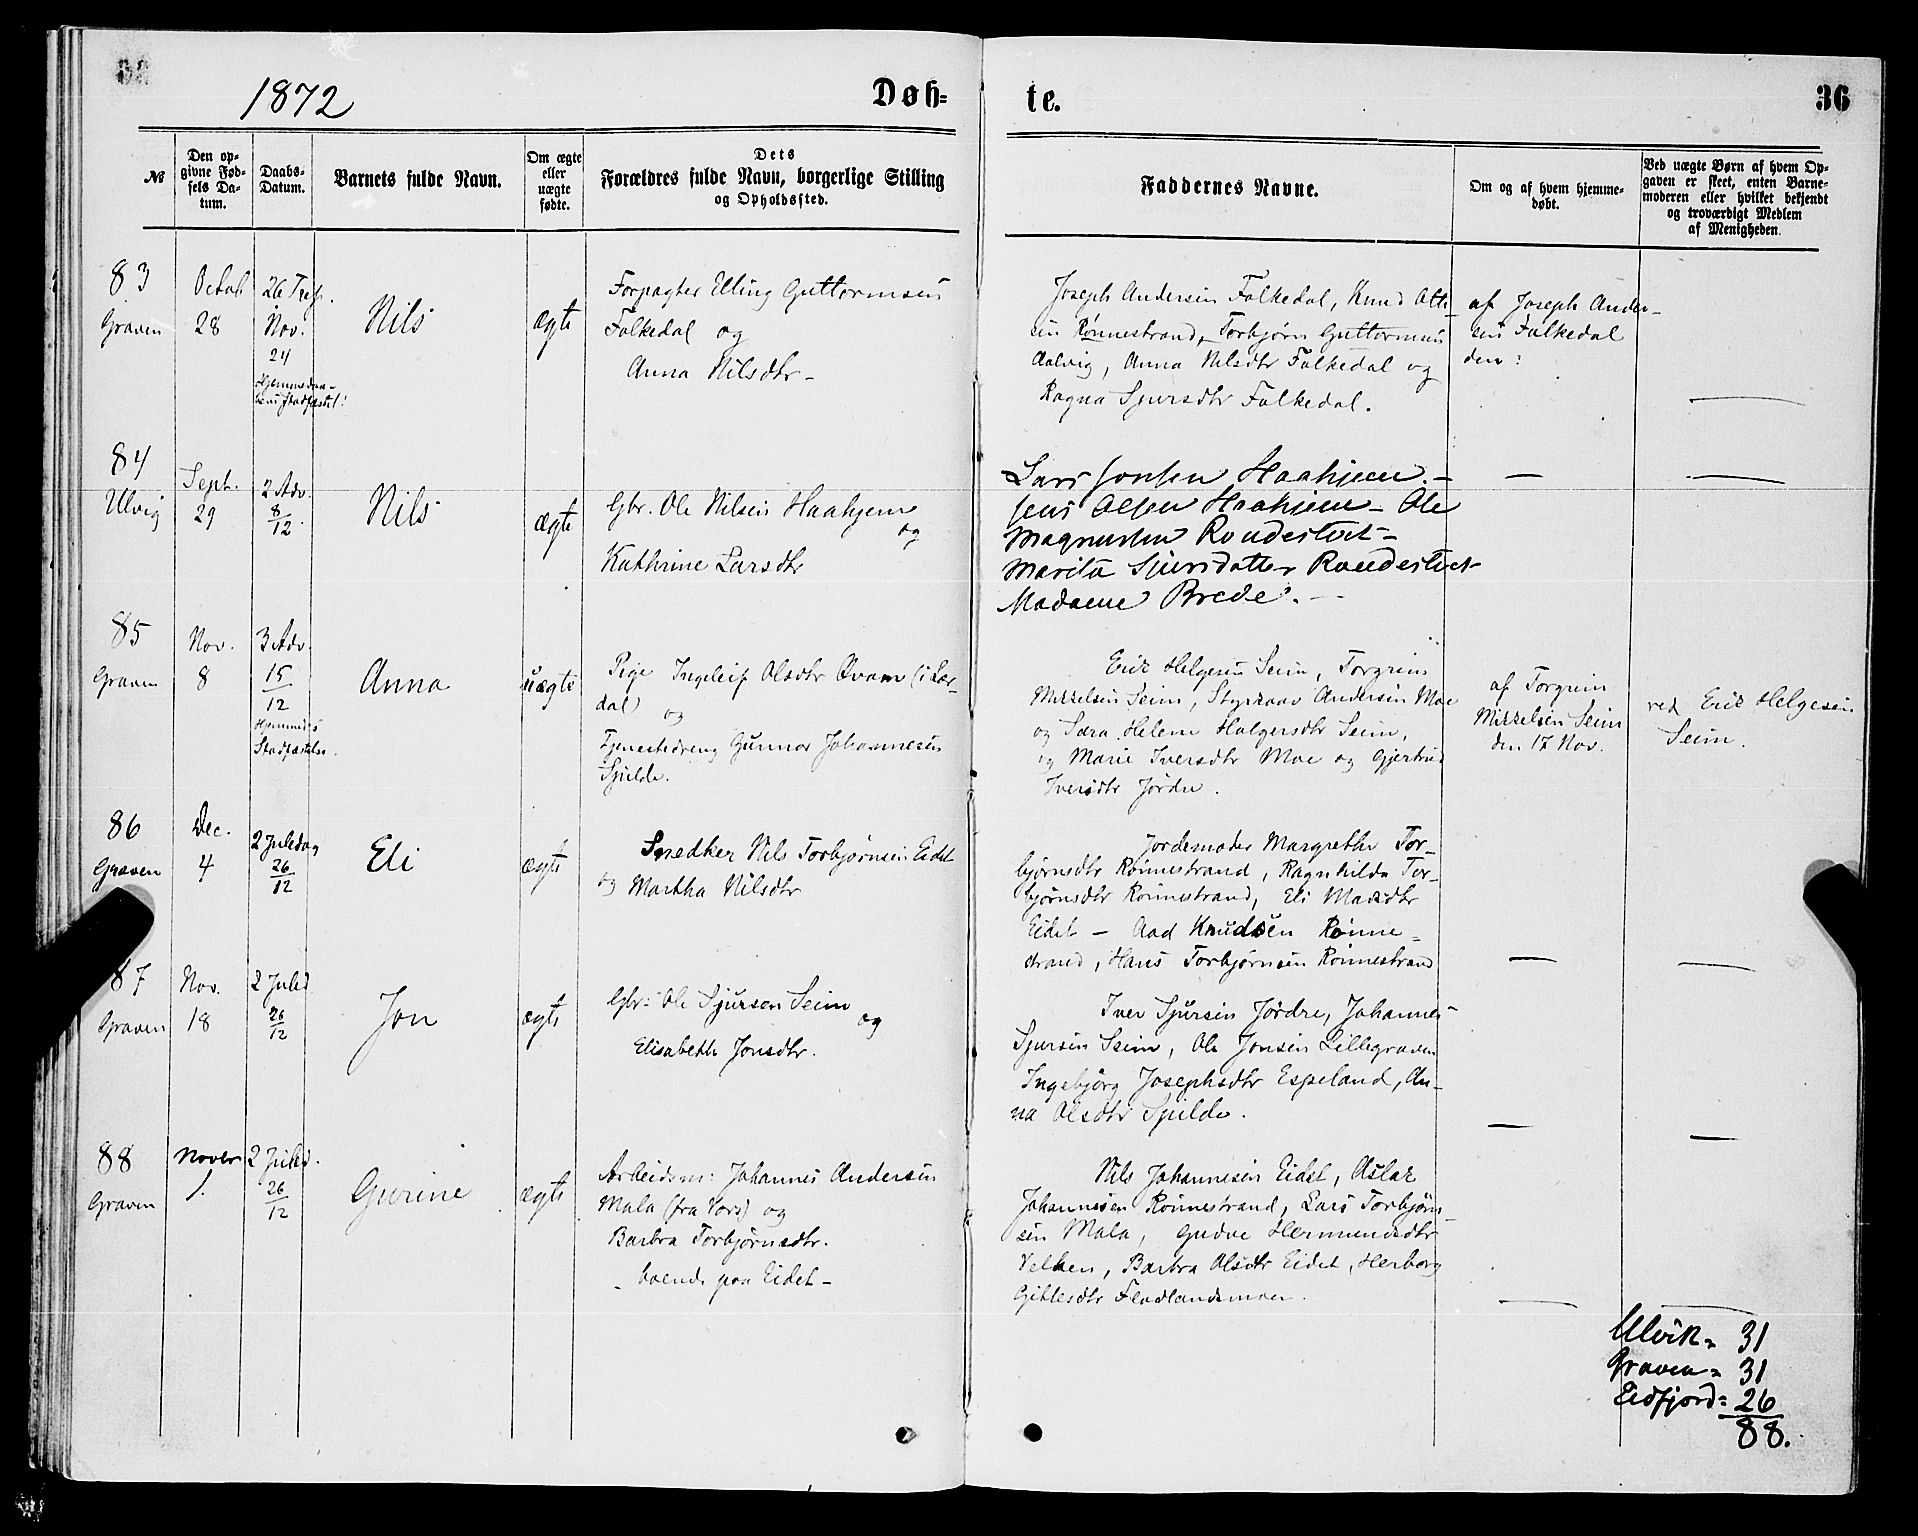 1872
Døb-
te.
36
№
Den op-
givne Fød-
sels Da-
tum.
Daabs-
Datum.
Barnets fulde Navn.
Om ægte
eller
uægte
fødte.
Dets
Forældres fulde Navn, borgerlige Stilling
og Opholdssted.
Faddernes Navne.
Om og af hvem hjemme-
døbt.
Ved uægte Børn af hvem Op-
gaven er skeet, enten Barne-
moderen eller hvilket bekjendt
og troværdigt Medlem
af Menigheden.
83
Graven
Octob
28
26 Tref.
Nov.
24
Hjemmedaa-
bens Stadfæstet:
Nils
ægte
Forpagter Elling Guttormsen
Folkedal og
Anna Nilsdtr -
Joseph Andersen Folkedal, Knud
sen Rönnestrand, Torbjørn Guttormsen
Aalvig, Anna Nilsdtr Folkedal og
Ragna Sjursdtr Folkedal.
af Joseph Ander-
sen Folkedal
den:
84
Ulvig
Sept.
29
2 Adv.
8
12
Nils
ægte
Gbr. Ole Nilsen Haakjem
og
Kathrine Larsdtr
Lars Jonsen Haakjem. -
Jens Olsen Haakjem - Ole
Magnussen Rondestvet -
Marita Sjursdatter Rondestvet
Madame Brede. -
85
Graven
Nov.
8
3 Adv.
15
12
Hjemmedøbs
Stadfæstelse.
Anna
uægte
Pige Ingeleif Olsdtr Qvam (i Lær-
dal) og
Tjenestedreng Gunnar Johannesen
Spilde.
Erik Helgesen Seim, Torgrim
Mikkelsen Seim, Styrkaar Andersen Moe
og Sara Helene Holgersdtr Seim,
og Marie Iversdtr Moe og Gjertrud
Iversdtr Jördre.
af Torgrim
Mikkelsen Seim
den 17 Nov.
ved Erik Helgesen
Seim.
86
Graven
Dec.
4
2 Juledag
26
12
Eli
ægte
Snedker Nils Torbjørnsen Eidet
og Martha Nilsdtr
Jordemoder Margrethe Tor-
björnsdtr Rönnestrand, Ragnhilda Tor-
björnsdtr Rönnestrand, Eli Madsdtr
Eidet - Aad Knudsen Rönne-
strand, Hans Torbjørnsen Rönnestrand
87
Graven
Nov.
18
2 Juled
26
12
Jon
ægte
Gbr: Ole Sjursen Seim
og
Elisabeth Jonsdtr.
Iver Sjursen Jördre, Johannes
Sjursen Seim, Ole Jonsen Lillegraven
Ingebjörg Josephsdtr Espeland, An-
na Olsdtr Spilde.
88
Graven
Novbr
1.
2 Juled.
26
12
Gurine
ægte
Arbeidsm: Johannes Andersen
Mala (fra Vors) og
Barbra Torbjørnsdtr.
- boende paa Eidet -
Nils Johannesen Eidet, Aslak
Johannesen Rönnestrand, Lars Torbjörn-
sen Mala, Gudve Hermundsdtr
Velken, Barbra Olsdtr Eidet, Herborg
Gitlesdtr Flodlandsmoen.
Ulvik = 31
Graven = 31
Eidfjord = 26
88.